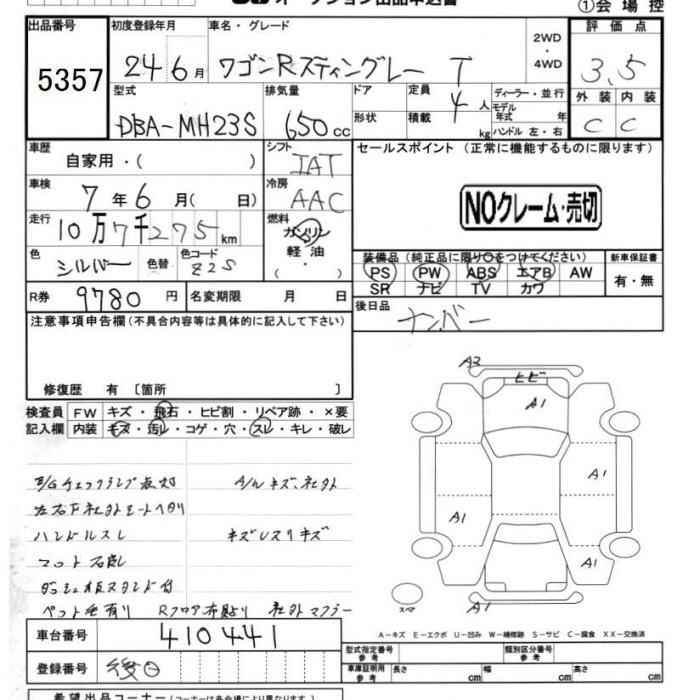 オークション出品申込書 ①会場控
出品番号 初度登録年月 車名・グレード 評価点
5357 24 6月 ワゴンRスティングレー T 2WD ・ 4WD 3.5
型式 排気量 ドア 定員 4人 ディーラー・並行 外装 内装
DBA-MH23S 650cc 形状 積載 kg モデル年式 年 ハンドル 左・右 C C
車歴 自家用・( ) シフト IAT セールスポイント (正常に機能するものに限ります)
車検 7年6月( 日) 冷房 AAC
NOクレーム・売切
走行 10万7千275km 燃料 ガソリン
軽・油
( )
色 シルバー 色替 色コード Z2S
装備品 (純正品に限り○をつけてください) 新車保証書
PS PW ABS エアB AW 有・無
SR ナビ TV カワ
R券 9780円 名変期限 月 日 後日品 ナンバー
注意事項申告欄(不具合内容等は具体的に記入して下さい)
修復歴 有 〔箇所 〕
検査員 FW キズ・飛石・ヒビ割・リペア跡・×要
記入欄 内装 キズ・汚レ・コゲ・穴・スレ・キレ・破レ
E/Gチェックランプ点灯 A/Wキズ、社外
左右F社外シートヘタリ
ハンドルスレ キズレスリキズ
マット
ダッシュ板スタンド付
ペット毛有り Rフロア布貼り 社外マフラー
A2
ヒビ
A1
A1
A1
A1
スペア
A-キズ E-エクボ U-凹み W-補修跡 S-サビ C-腐食 XX-交換済
車台番号 410441
登録番号 後日
型式指定番号 類別区分番号
参考
車庫証明用 長さ cm 幅 cm 高さ cm
参考
希望出品コーナー(コーナーは各会場により異なります。)